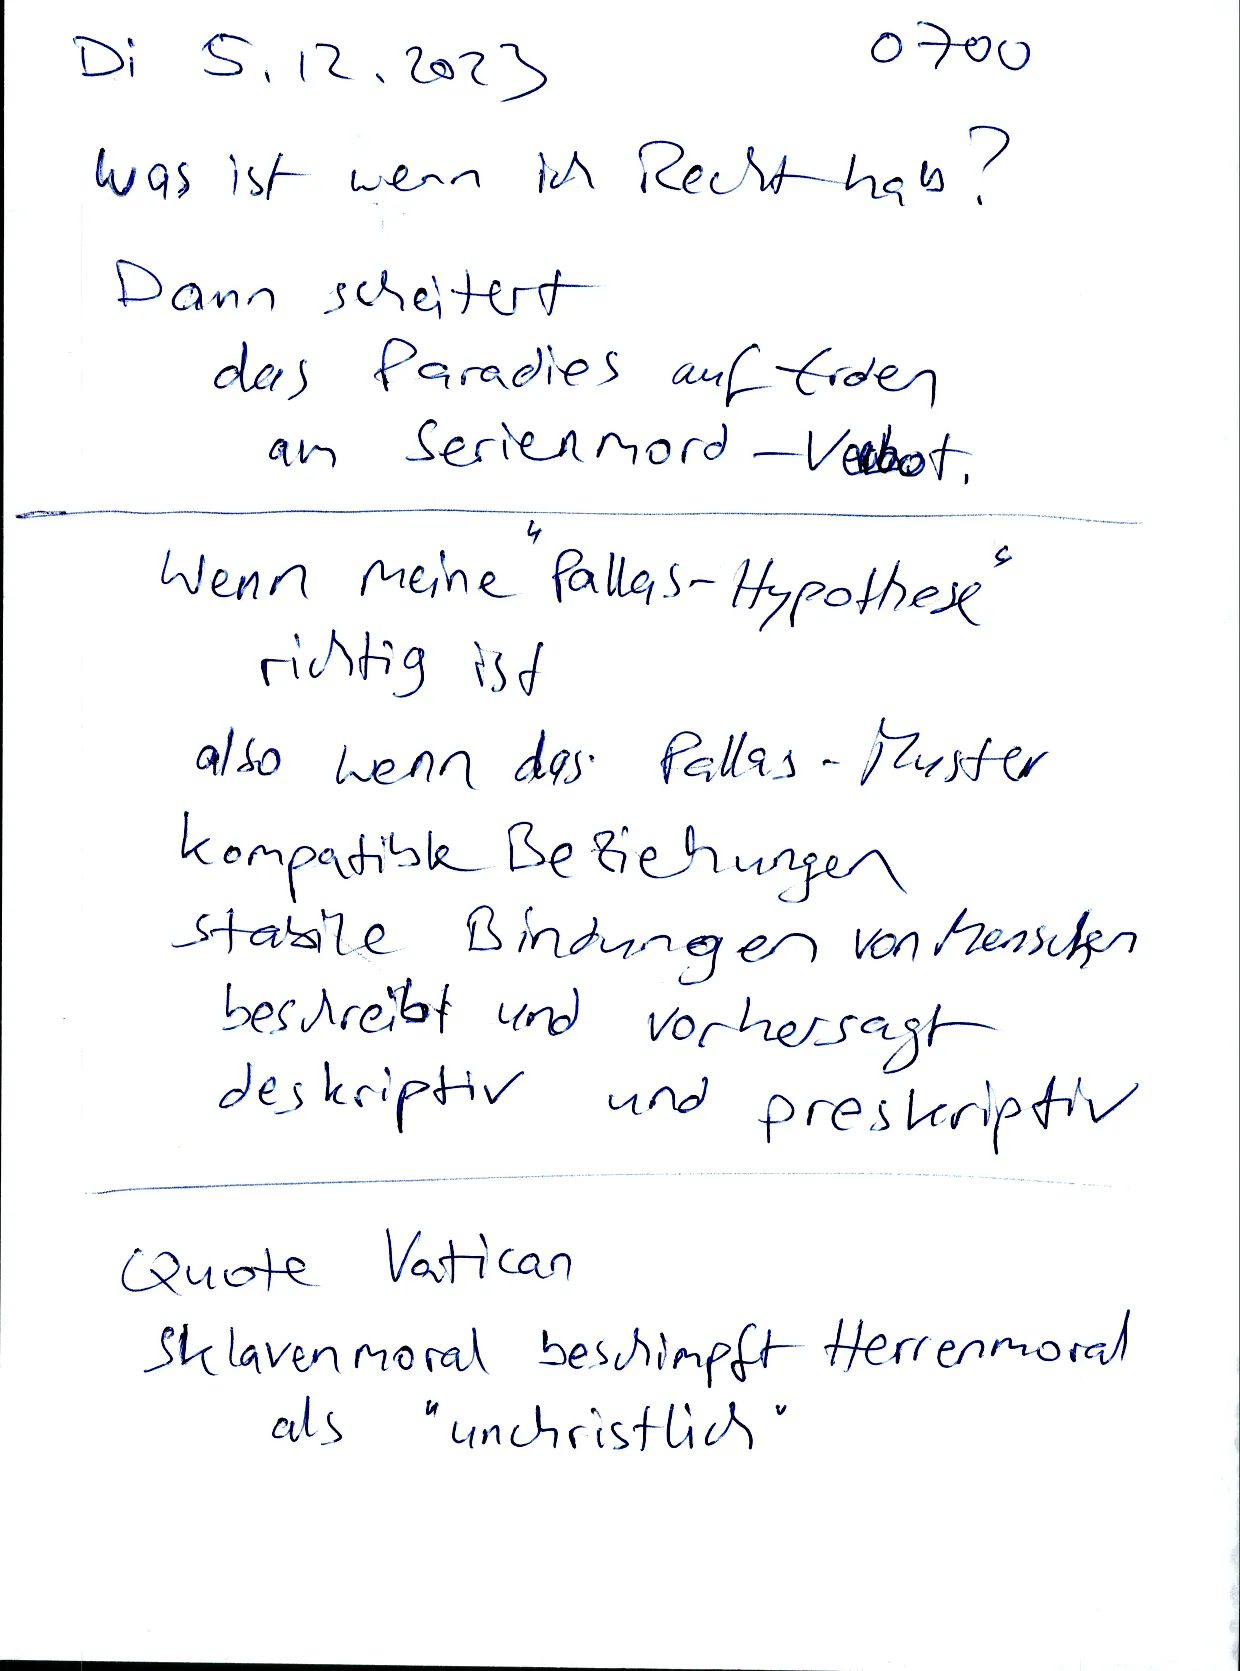 Di 5.12.2023 0700
was ist wenn ich Recht hab?
Dann scheitert
das Paradies auf Erden
am Serienmord-Verbot.
Wenn meine "Pallas-Hypothese"
richtig ist
also wenn das Pallas-Muster
kompatible Beziehungen
stabile Bindungen von Menschen
beschreibt und vorhersagt
deskriptiv und preskriptiv
Quote Vatican
Sklavenmoral beschimpft Herrenmoral
als "unchristlich"